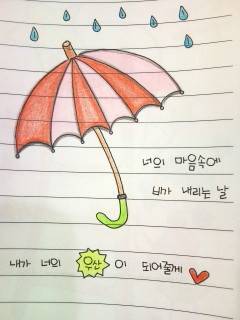 너의 마음속에
비가 내리는 날
내가 너의 우산이 되어줄게